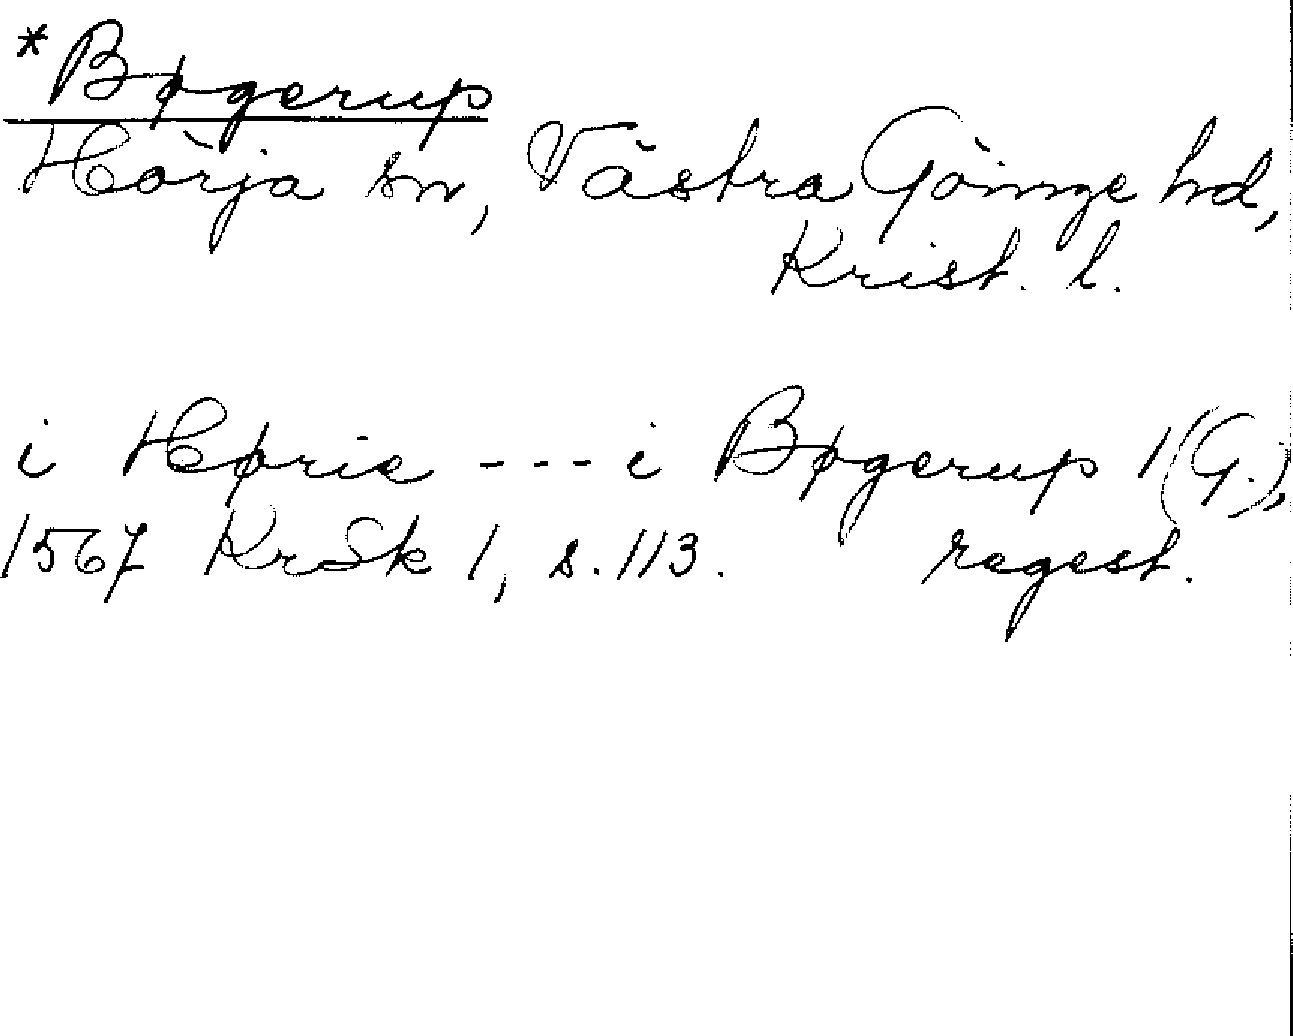 *Bøgerup
Hörja sn, Västra Göinge hd,
Krist. l.
i Hørie --- i Bøgerup 1(G.),
1567 KrSk 1, s. 113. regest.